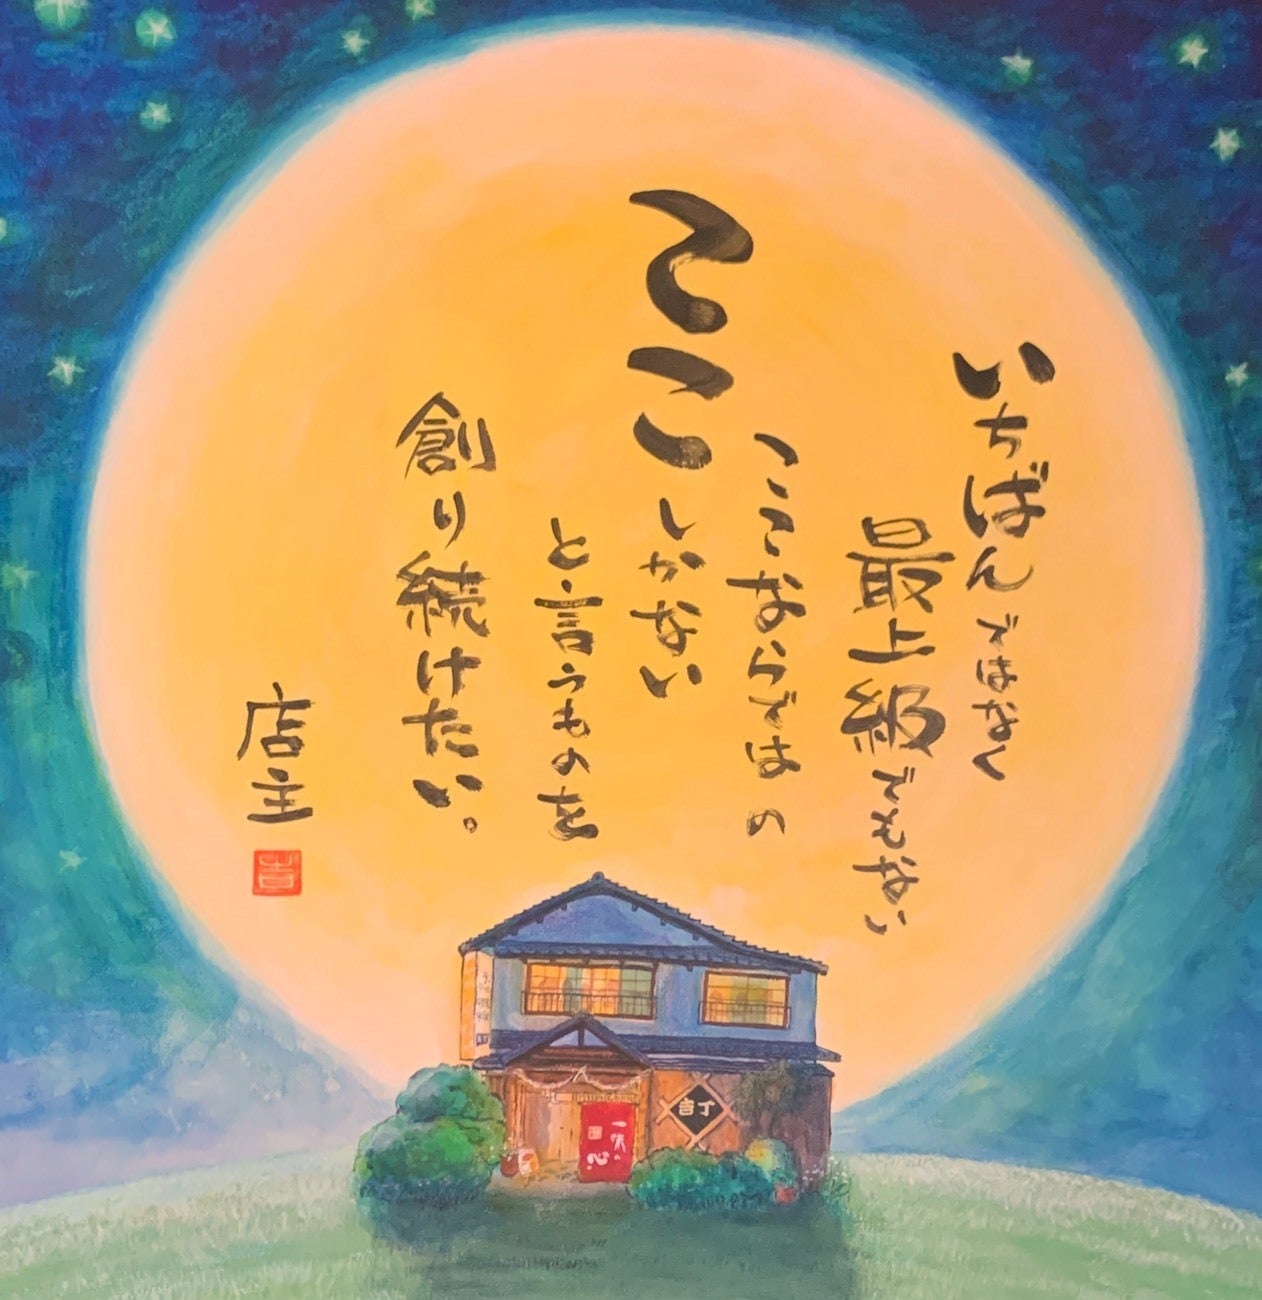 いちばんではなく
最上級でもない
ここならではの
ここしかない
と言うものを
創り続けたい。
店主
吉
吉丁
心